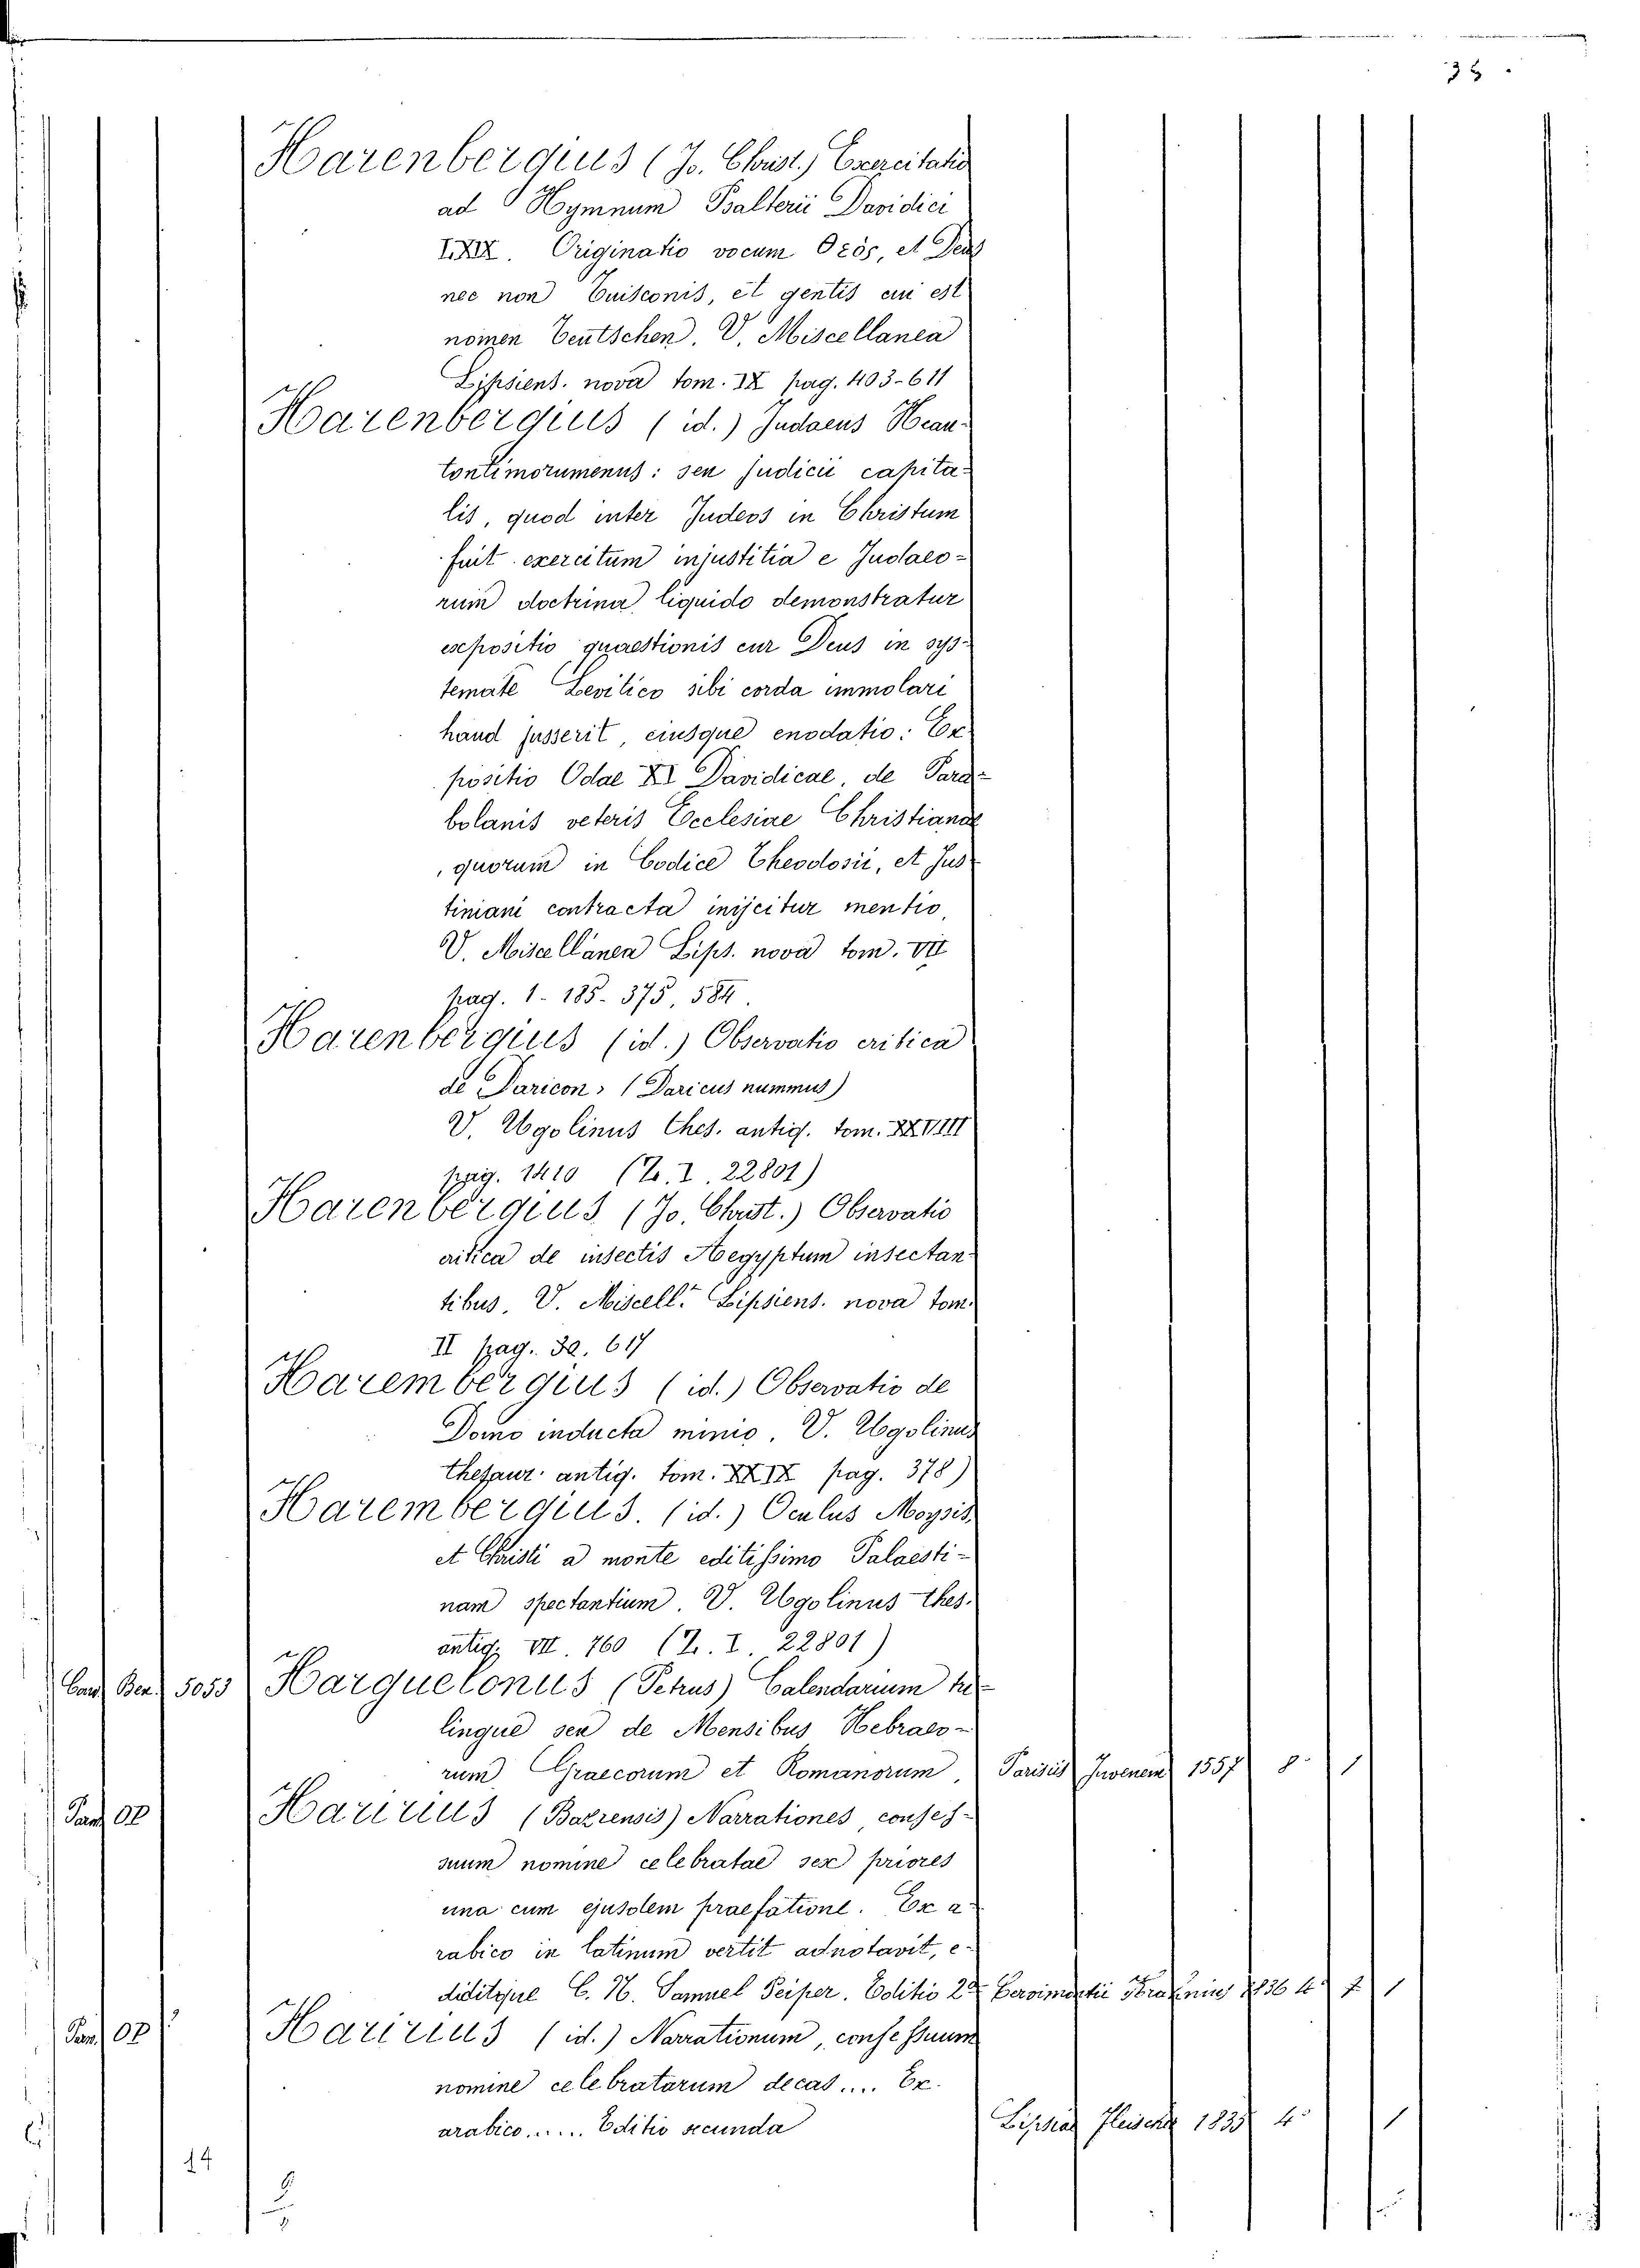 Harenbergius (Jo. Christ.) Exercitatio
ad Hymnum Psalterii Davidici
LXIX. Originatio vocum Θεός, et Deus
nec non Tuisconis, et gentis cui est
nomen Teutschen. V. Miscellanea
Lipsiens. nova tom. IX pag. 403-611
Harenbergius (id.) Judaeus Heau-
tontimorumenus: seu judicii capita-
lis, quod inter Judeos in Christum
fuit exercitum injustitia e Judaeo=
rum doctrina liquido demonstratur
expositio quaestionis cur Deus in sys-
temate Levitico sibi corda immolari
haud jusserit, eiusque enodatio: Ex-
positio Odae XI Davidicae, de Para-
bolanis veteris Ecclesiae Christianae
, quorum in Codice Theodosii, et Jus-
tiniani contracta inijcitur mentio,
V. Miscellanea Lips. nova tom. VII
pag. 1- 185- 375, 584.
Harenbergius (id.) Observatio critica
de Daricon, (Daricus nummus)
V. Ugolinus Thes. antiq. tom. XXVIII
pag. 1410 (Z. I. 22801)
Harenbergius (Jo. Christ.) Observatio
critica de insectis Aegyptum insectan-
tibus. V. Miscell. Lipsiens. nova tom.
II pag. 32. 617
Harembergius (id.) Observatio de
Domo inducta minio. V. Ugolinus
thesaur. antiq. tom. XXIX pag. 378)
Harembergius. (id.) Oculus Moysis,
et Christi a monte editissimo Palaesti-
nam spectantium. V. Ugolinus thes.
antiq. VII. 760 (Z. I. 22801)
Cand Ben. 5053 Harquelonus (Petrus) Calendarium tri-
lingue seu de Mensibus Hebraeo-
rum Graecorum et Romanorum, Parisiis Juvenem 1557 8° 1
Pand OP Haririus (Bazrensis) Narrationes, conses-
suum nomine celebratae sex priores
una cum ejusdem praefatione. Ex a-
rabico in latinum vertit adnotavit, e-
diditque C. R. Samuel Peiper. Editio 2ª Cervimontii 1836 4° 1
Pand OP Haririus (id.) Narrationum, consessuum
nomine celebratarum decas.... Ex
arabico...... Editio secunda Lipsiae Fleischer 1835 4° 1
14